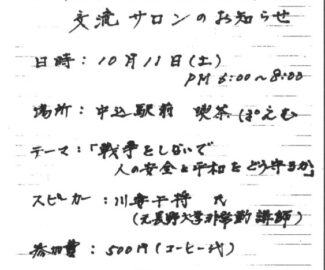 交流サロンのお知らせ
日時：10月11日(土)
PM 6:00～8:00
場所：中込駅前 喫茶 ぽえむ
テーマ：「戦争をしないで
人の安全と平和をどう守るか」
スピーカー：川 干将 氏
(元長野大学非常勤講師)
参加費：500円(コーヒー代)